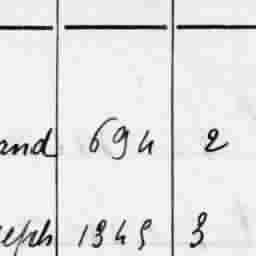 and 694 2
eph 1345 3